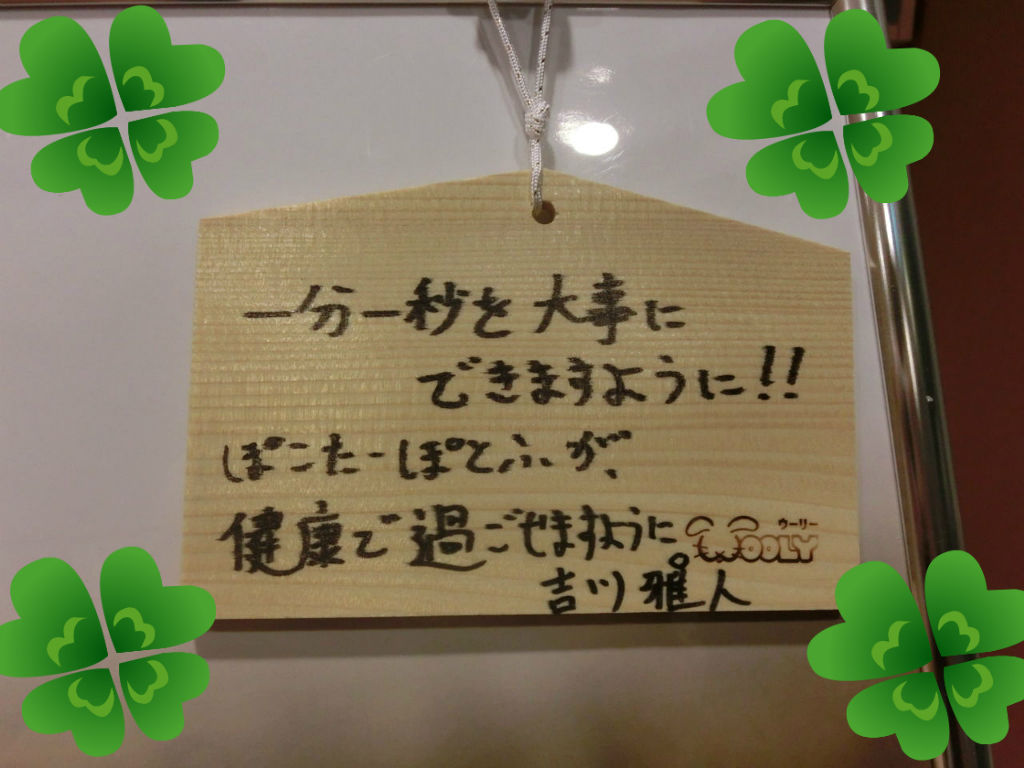 一分一秒を大事に
できますように!!
ぽこたーぽてふが、
健康で過ごせますように
ウーリー
WOOLY
吉川雅人